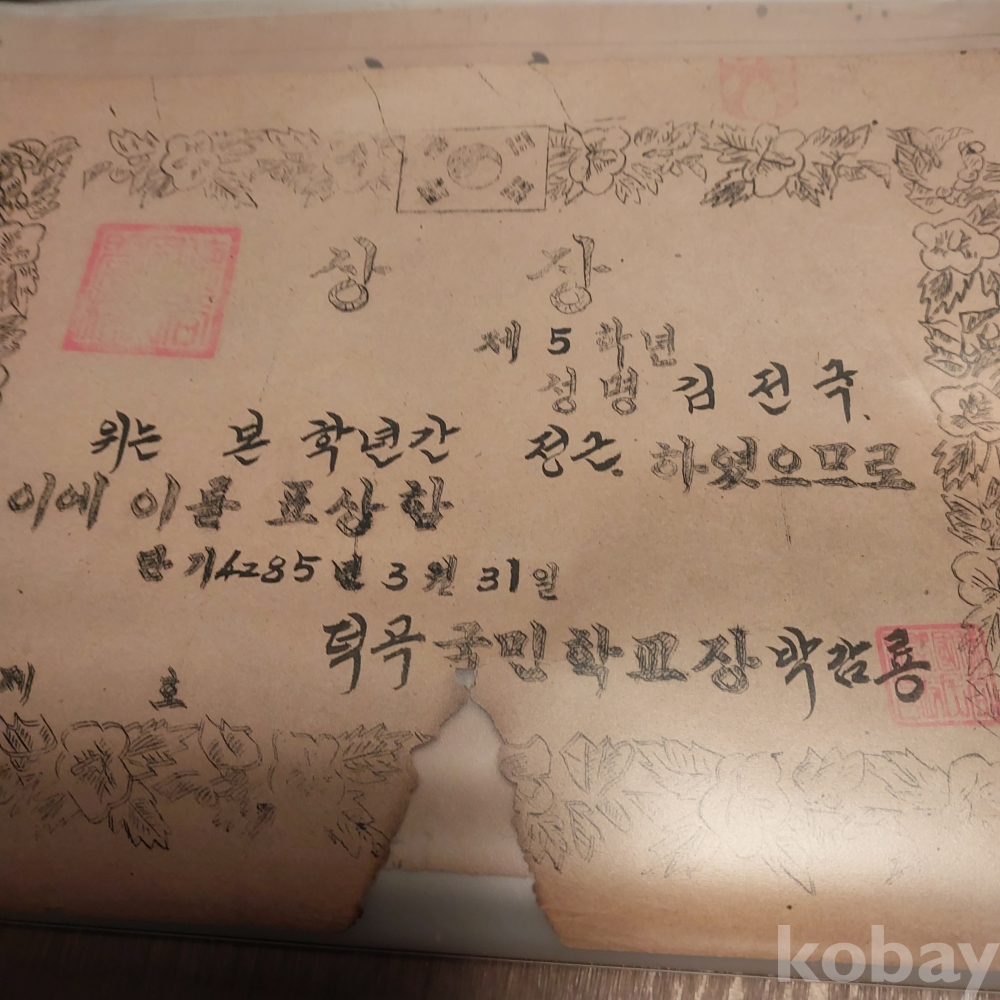 상 장
제 5 학년
성명 김 전 국.
위는 본 학년간 정근. 하였으므로
이에 이를 표상함
단기 4285년 3월 31일
덕곡국민학교장 박감룡
제 호
kobay